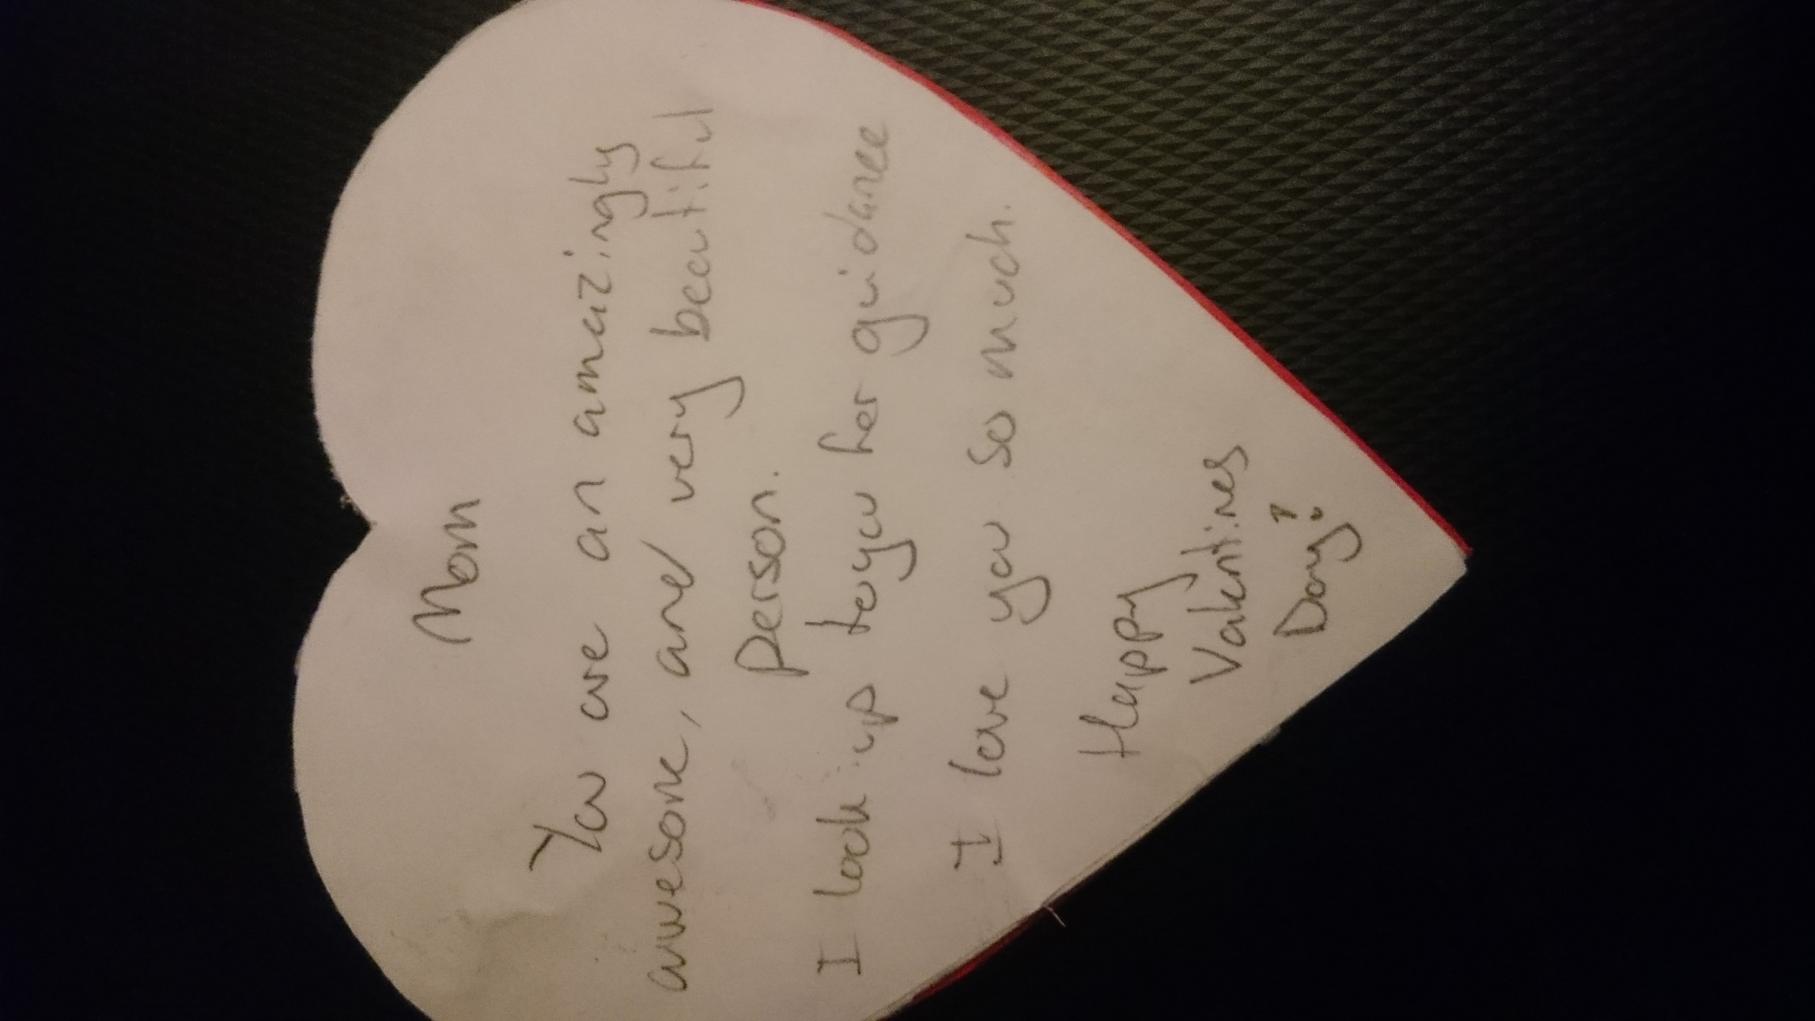 Mom
You are an amazingly
awesome, and very beautiful
person.
I look up to you for guidance
I love you so much.
Happy
Valentines
Day!